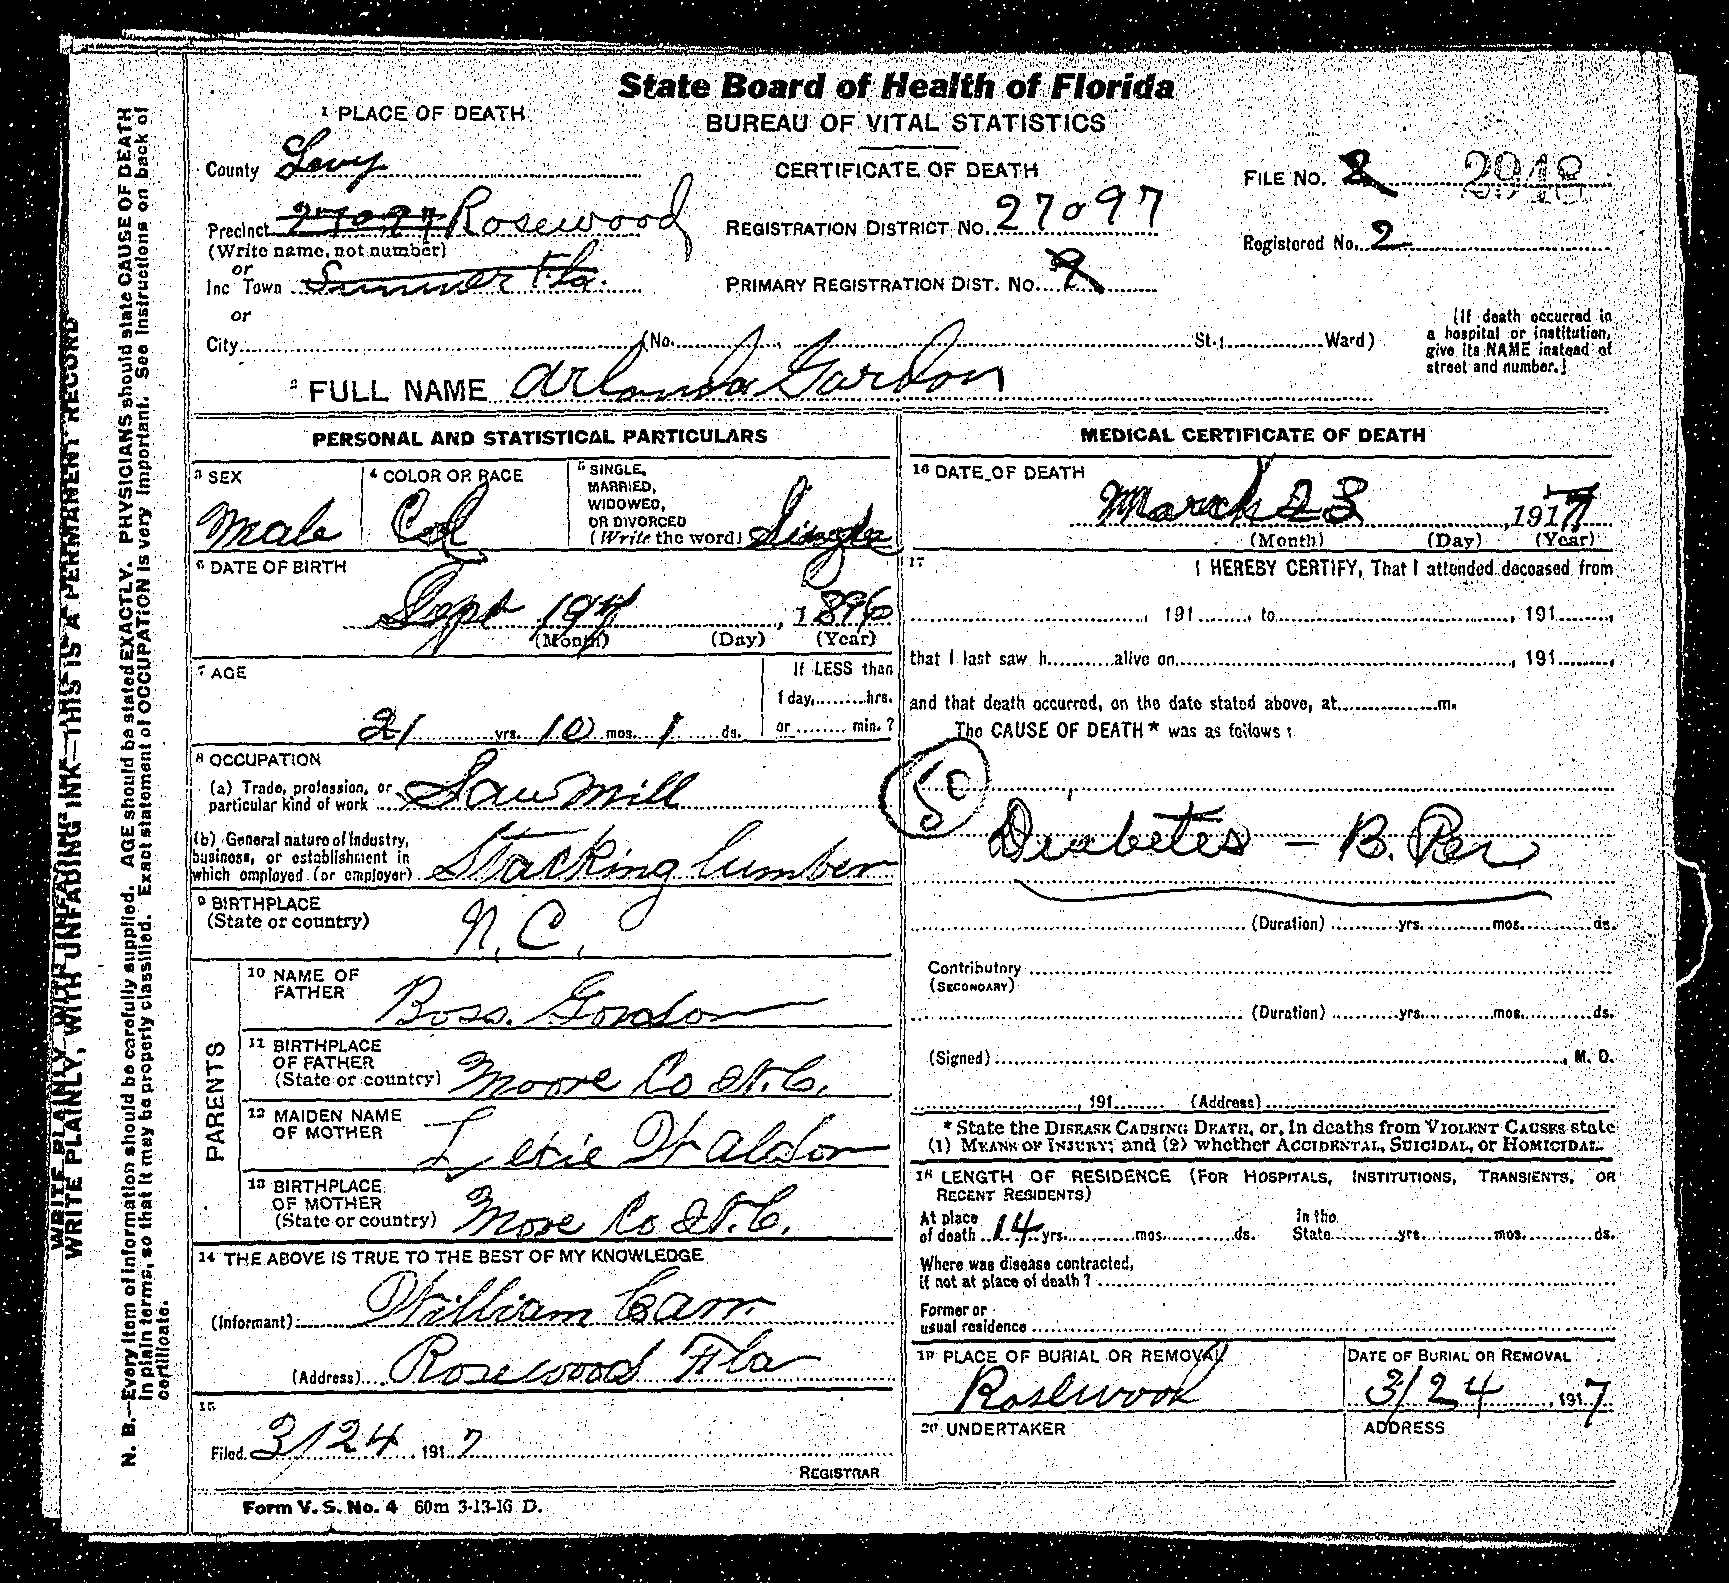 State Board of Health of Florida
BUREAU OF VITAL STATISTICS
CERTIFICATE OF DEATH
1 PLACE OF DEATH
County Levy
Precinct 27097 Rosewood
(Write name, not number)
or
Inc Town Sumner Fla.
or
City (No. St.; Ward)
REGISTRATION DISTRICT NO. 27097
PRIMARY REGISTRATION DIST. NO.
FILE NO. 2 2948
Registered No. 2
(If death occurred in
a hospital or institution,
give its NAME instead of
street and number.)
2 FULL NAME Arlanda Gordon
PERSONAL AND STATISTICAL PARTICULARS
3 SEX
Male
4 COLOR OR RACE
Col
5 SINGLE,
MARRIED,
WIDOWED,
OR DIVORCED
(Write the word) Single
6 DATE OF BIRTH
Sept 1896
(Month) (Day) (Year)
7 AGE
21 yrs. 10 mos. 1 ds.
If LESS than
1 day, hrs.
or min.?
8 OCCUPATION
(a) Trade, profession, or
particular kind of work Saw Mill
(b) General nature of Industry,
business, or establishment in
which employed (or employer) Stacking lumber
9 BIRTHPLACE
(State or country) N.C.
PARENTS
10 NAME OF
FATHER Boss. Gordon
11 BIRTHPLACE
OF FATHER
(State or country) Moore Co N.C.
12 MAIDEN NAME
OF MOTHER Waldon
13 BIRTHPLACE
OF MOTHER
(State or country) More Co N.C.
14 THE ABOVE IS TRUE TO THE BEST OF MY KNOWLEDGE
(Informant) William Carr
(Address) Rosewood Fla
15
Filed 3/24 1917
REGISTRAR
Form V. S. No. 4 60m 3-13-16 D.
MEDICAL CERTIFICATE OF DEATH
16 DATE OF DEATH
March 23 1917
(Month) (Day) (Year)
17 I HEREBY CERTIFY, That I attended deceased from
, 191 , to , 191 ,
that I last saw h alive on , 191 ,
and that death occurred, on the date stated above, at m.
The CAUSE OF DEATH* was as follows:
50
Diabetes – B. Per
(Duration) yrs. mos. ds.
Contributory
(SECONDARY)
(Duration) yrs. mos. ds.
(Signed) , M. D.
, 191 (Address)
* State the DISEASE CAUSING DEATH, or, in deaths from VIOLENT CAUSES state
(1) MEANS OF INJURY; and (2) whether ACCIDENTAL, SUICIDAL, or HOMICIDAL.
18 LENGTH OF RESIDENCE (FOR HOSPITALS, INSTITUTIONS, TRANSIENTS, OR
RECENT RESIDENTS)
At place
of death 14 yrs. mos. ds.
In the
State yrs. mos. ds.
Where was disease contracted,
if not at place of death?
Former or
usual residence
19 PLACE OF BURIAL OR REMOVAL
Rosewood
DATE OF BURIAL OR REMOVAL
3/24, 1917
20 UNDERTAKER
ADDRESS
WRITE PLAINLY, WITH UNFADING INK—THIS IS A PERMANENT RECORD
N. B.—Every item of information should be carefully supplied. AGE should be stated EXACTLY. PHYSICIANS should state CAUSE OF DEATH
in plain terms, so that it may be properly classified. Exact statement of OCCUPATION is very important. See instructions on back of
certificate.